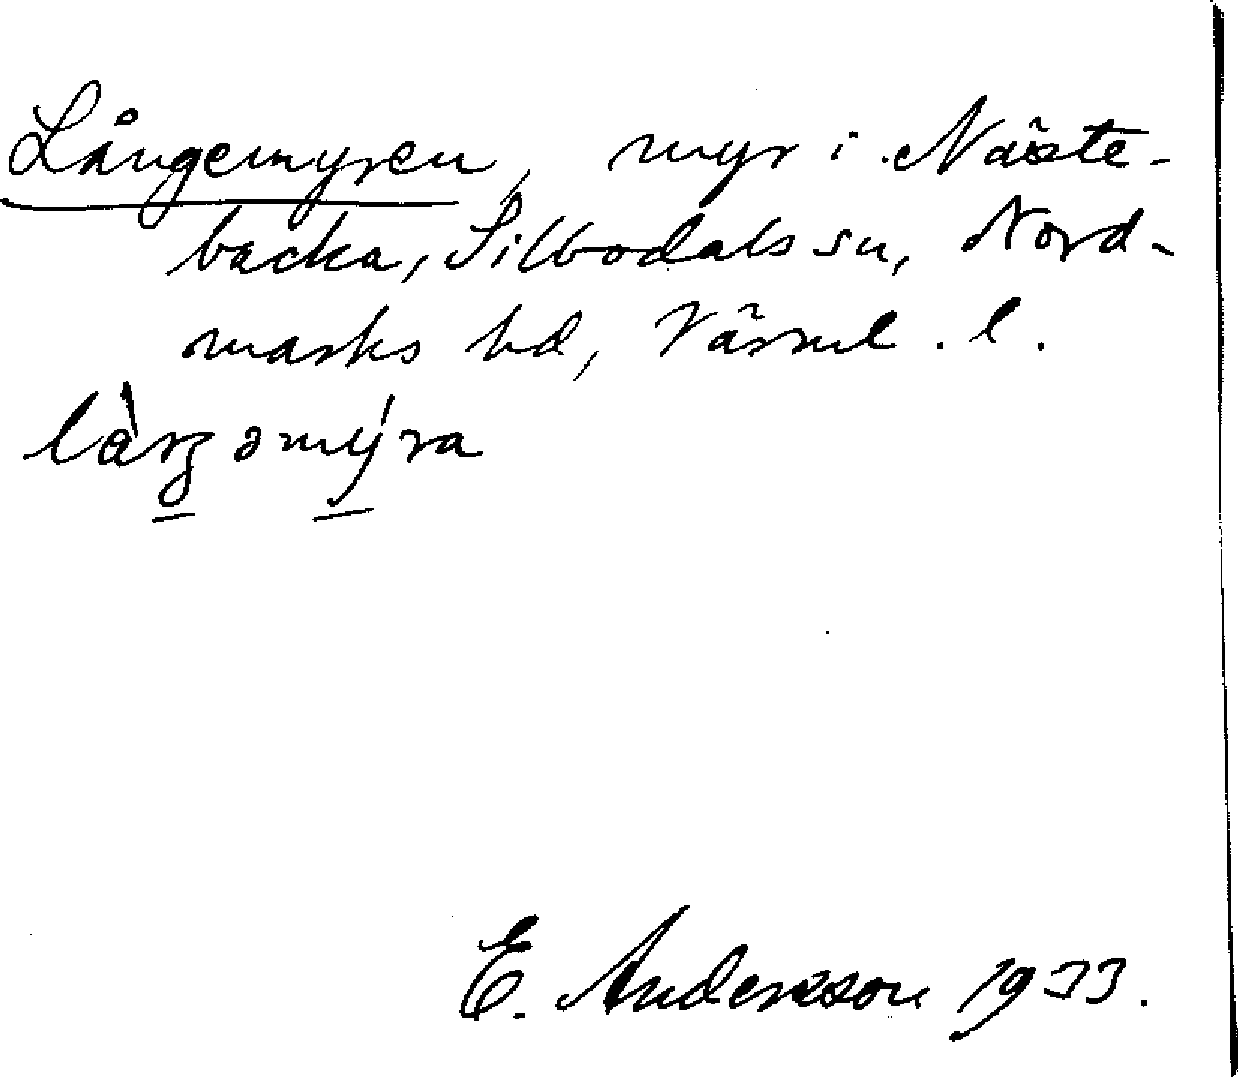 Långemyren, myr i Näste-
backa, Silbodals sn, Nord-
marks hd, Värml. l.
làŋəmýra
E. Andersson 1933.